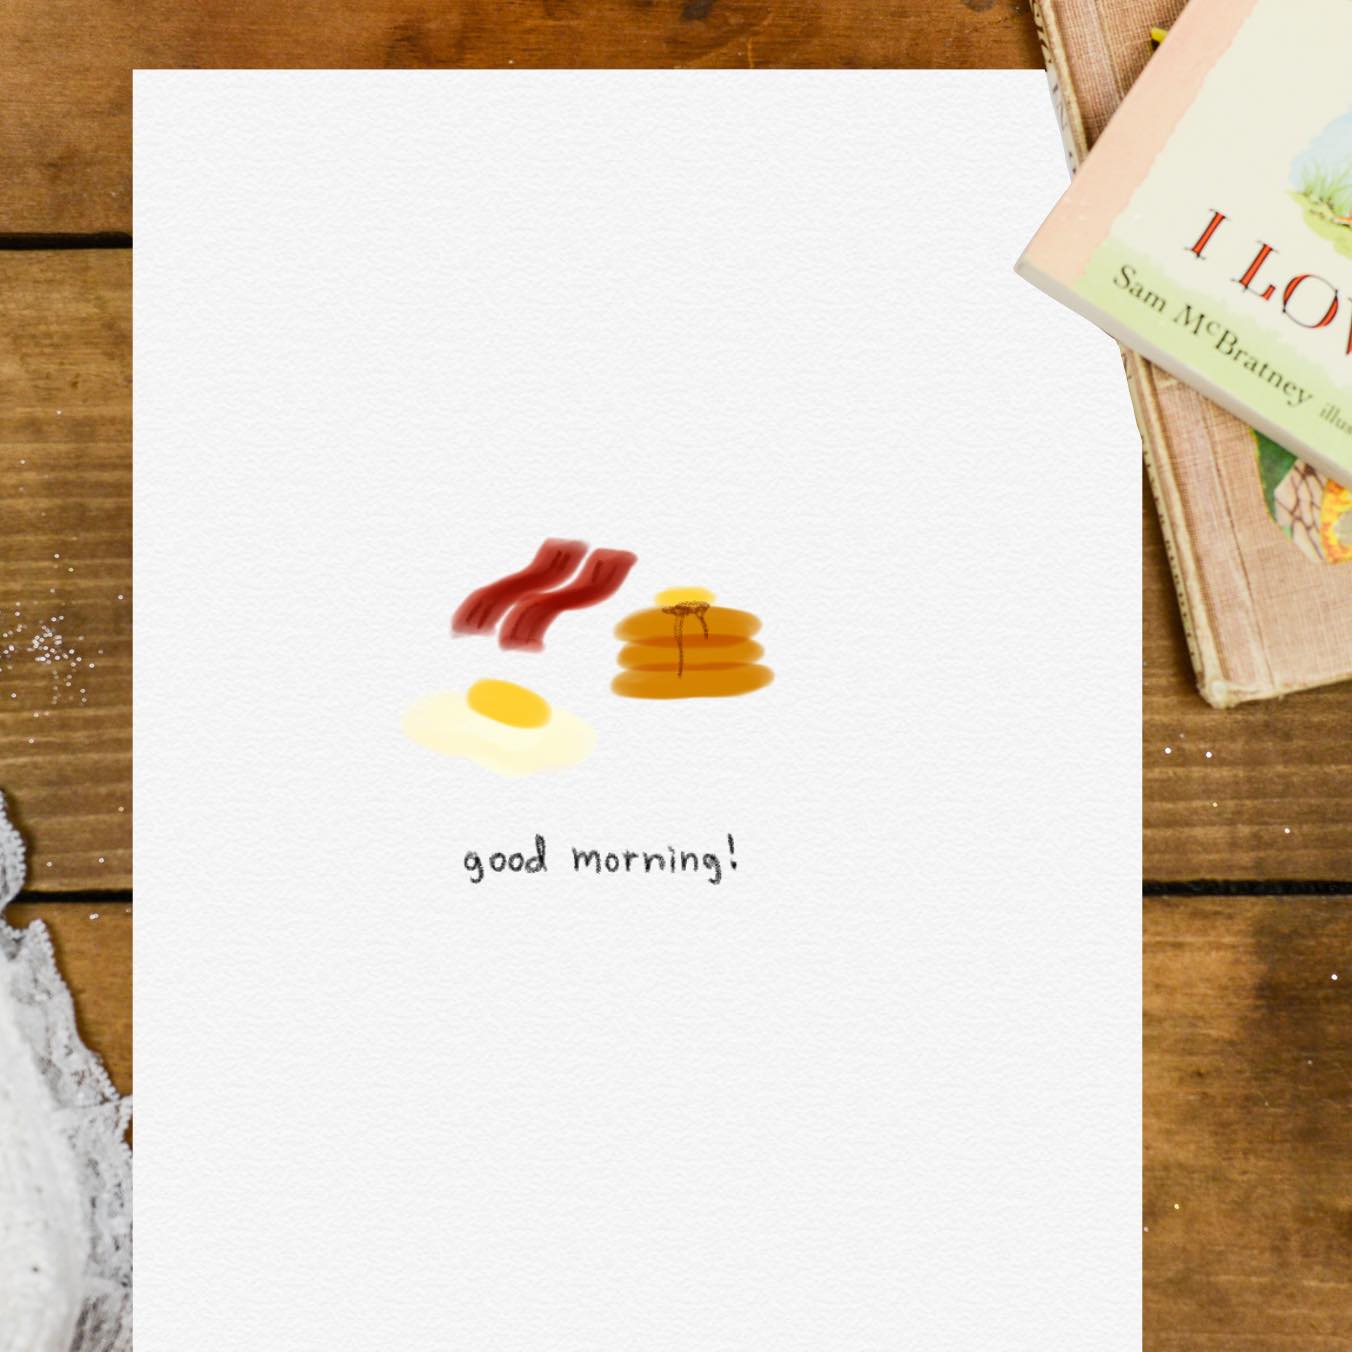 I LOV
Sam McBratney
good morning!